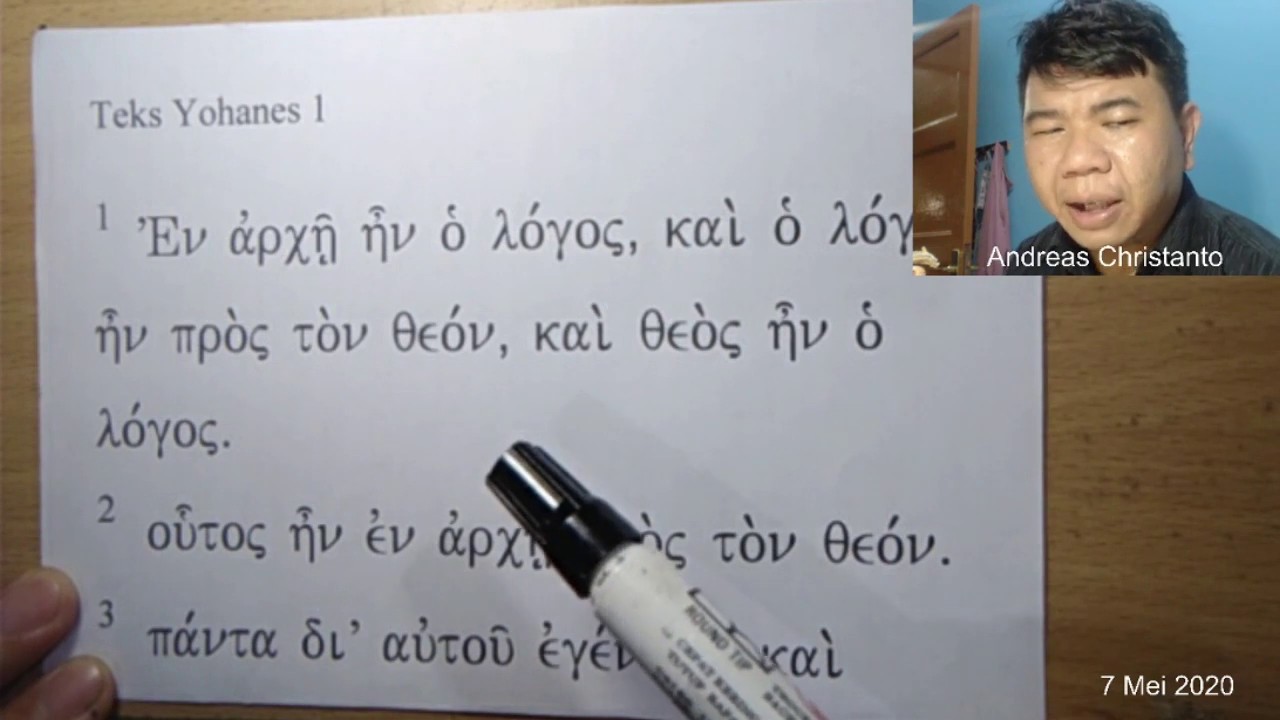 Teks Yohanes 1
1 Ἐν ἀρχῇ ἦν ὁ λόγος, καὶ ὁ
ἦν πρὸς τὸν θεόν, καὶ θεὸς ἦν ὁ
λόγος.
2 οὗτος ἦν ἐν τὸν θεόν.
3 πάντα δι’ αὐτοῦ καὶ
ROUND TIP
Andreas Christanto
7 Mei 2020